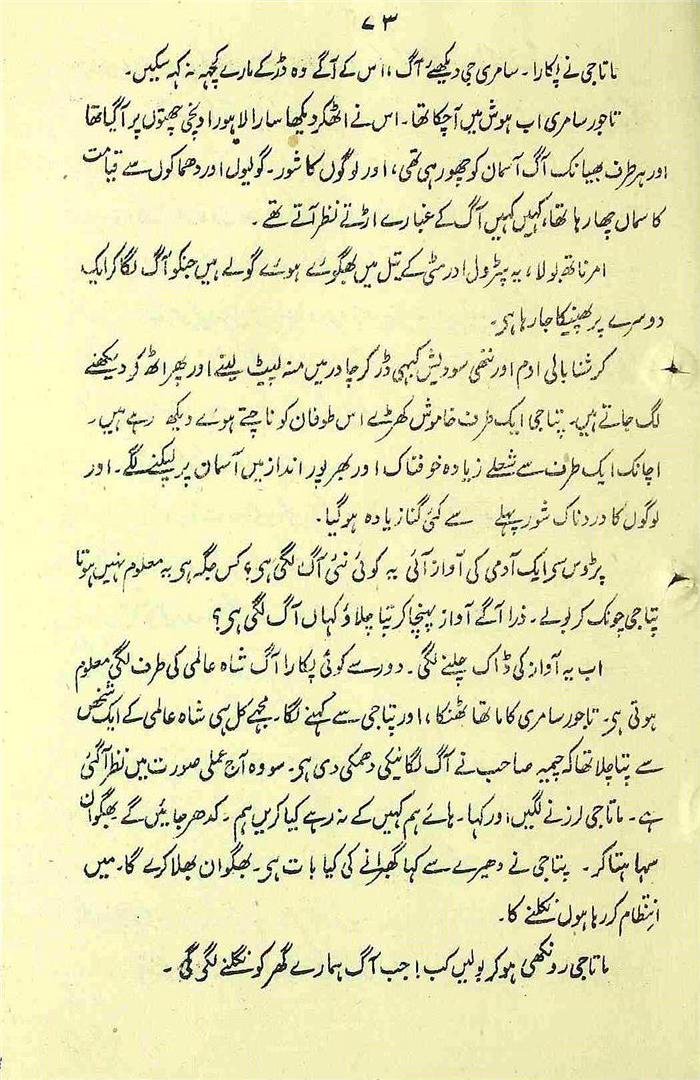 ۷۳
ماتاجی نے پکارا۔ سامری جی دیکھئے آگ ،اس کے آگے وہ ڈر کے مارے کچہہ نہ کہہ سکیں۔
تاجور سامری اب ہوش میں آچکا تھا۔ اس نے اٹھکر دیکھا سارا لاہور اونچی چھتوں پر آگیا تھا
اور ہر طرف بھیانک آگ آسمان کو چھور ہی تھی، اور لوگوں کا شور۔ گولیوں اور دھماکوں سے قیامت
کا سماں چھا رہا تھا، کہیں کہیں آگ کے غبارے اڑتے نظر آتے تھے ۔
امر ناتھ بولا ، یہ پٹرول اور مٹی کے تیل میں بھگوئے ہوئے گولے ہیں جنکو آگ لگا کر ایک
دوسرے پر پھینکا جا رہا ہی۔
کرشنا بالی ادم اور ننھی سودیش کبہی ڈر کر چادر میں منہ لپیٹ لیتے اور پھر اٹھ کر دیکھنے
لگ جاتے ہیں۔ پتاجی ایک طرف خاموش کھڑے اس طوفان کو ناچتے ہوئے دیکھ رہے ہیں۔
اچانک ایک طرف سے شعلے زیادہ خوفناک اور بھرپور انداز میں آسمان پر لپکنے لگے۔ اور
لوگوں کا دردناک شور پہلے سے کئی گنا زیادہ ہوگیا۔
پڑوس سی ایک آدمی کی آواز آئی یہ کوئی نئی آگ لگی ہی؟ کس جگہ ہی یہ معلوم نہیں ہوتا
پتاجی چونک کر بولے۔ ذرا آگے آواز پہنچا کر پتا چلاؤ کہاں آگ لگی ہی؟
اب یہ آواز کی ڈاک چلنے لگی۔ دور سے کوئی پکارا آگ شاہ عالمی کی طرف لگی معلوم
ہوتی ہی۔ تاجور سامری کا ماتھا ٹھنکا ،اور پتاجی سے کہنے لگا۔ مجہے کل ہی شاہ عالمی کے ایک شخص
سے پتا چلا تھا کہ چیمیہ صاحب نے آگ لگانیکی دھمکی دی ہی۔ سو وہ آج عملی صورت میں نظر آگئی
ہے۔ ماتاجی لرزنے لگیں اور کہا۔ ہائے ہم کہیں کے نہ رہے کیا کریں ہم۔ کدھر جائیں گے بھگوان
سہا ہتا کر۔ پتاجی نے دھیرے سے کہا گھبرانے کی کیا بات ہی۔ بھگوان بھلا کرے گا۔ میں
انتظام کر رہا ہوں نکلنے کا۔
ماتاجی رونکھی ہو کر بولیں کب! جب آگ ہمارے گھر کو نگلنے لگی گی ۔